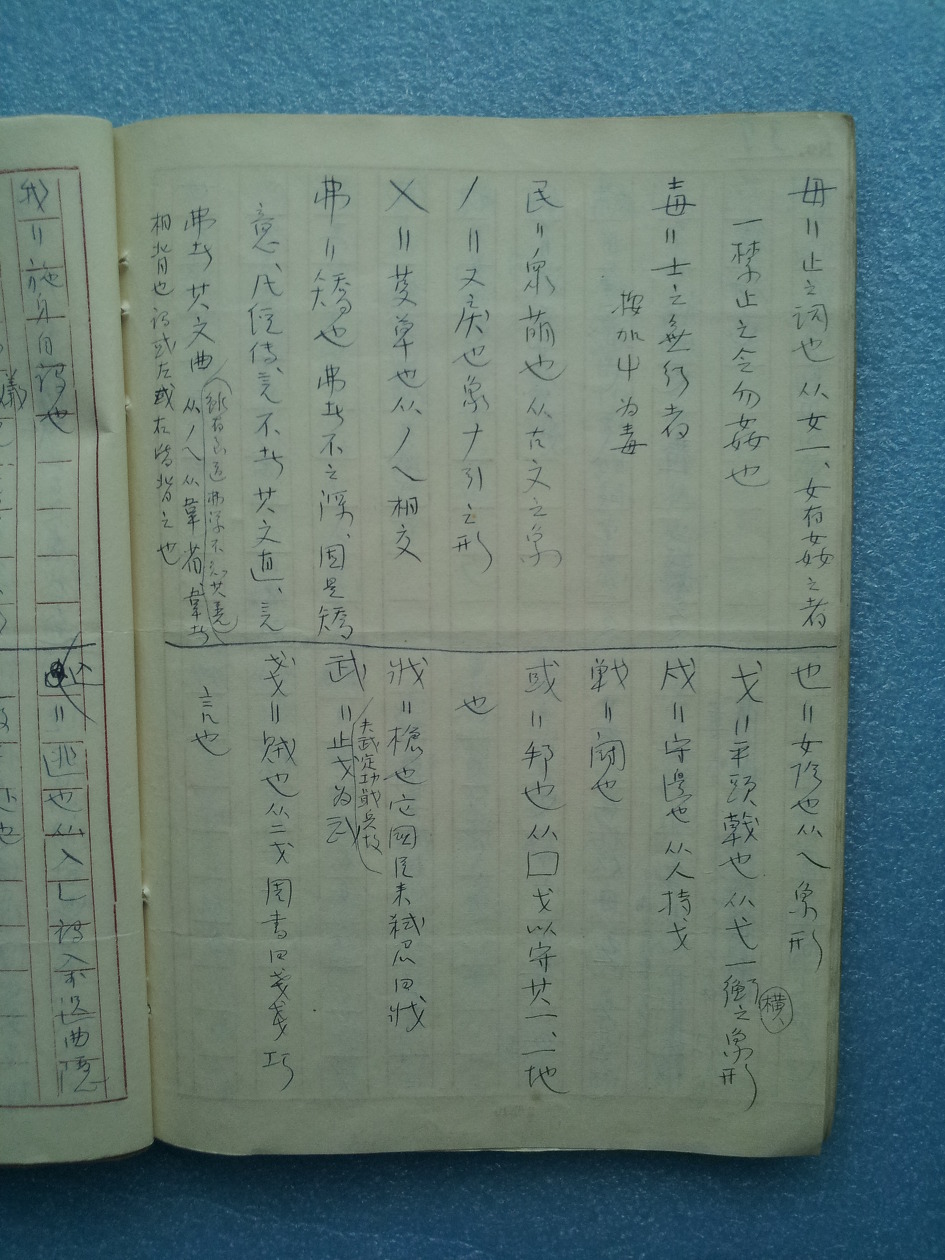 毋＝止之詞也从女一、女有姦之者
一禁止之令勿姦也
毒＝士之無行者
按加屮为毒
民＝衆萠也从古文之象
丿＝又戾也象ナ引之形
乂＝芟草也从丿乀相交
弗＝矯也弗者不之深、固是矯
意、凡經傳、言不者其文直、言
弗者其文曲 从丿乀从韋省、韋者
相背也 謂或左或右皆背之也
也＝女陰也从乀象形
戈＝平頭戟也从弋一衡之象形
橫、
戍＝守邊也从人持戈
戦＝闘也
或＝邦也从囗戈以守其一、一地
也
戕＝槍也它國臣来弑君曰戕
武＝止戈为武
夫武定功戢兵故
戔＝賊也从二戈 周書曰戔戔巧
言也
我＝施身自謂也
＝逃也从入乚謂入於迟曲隱